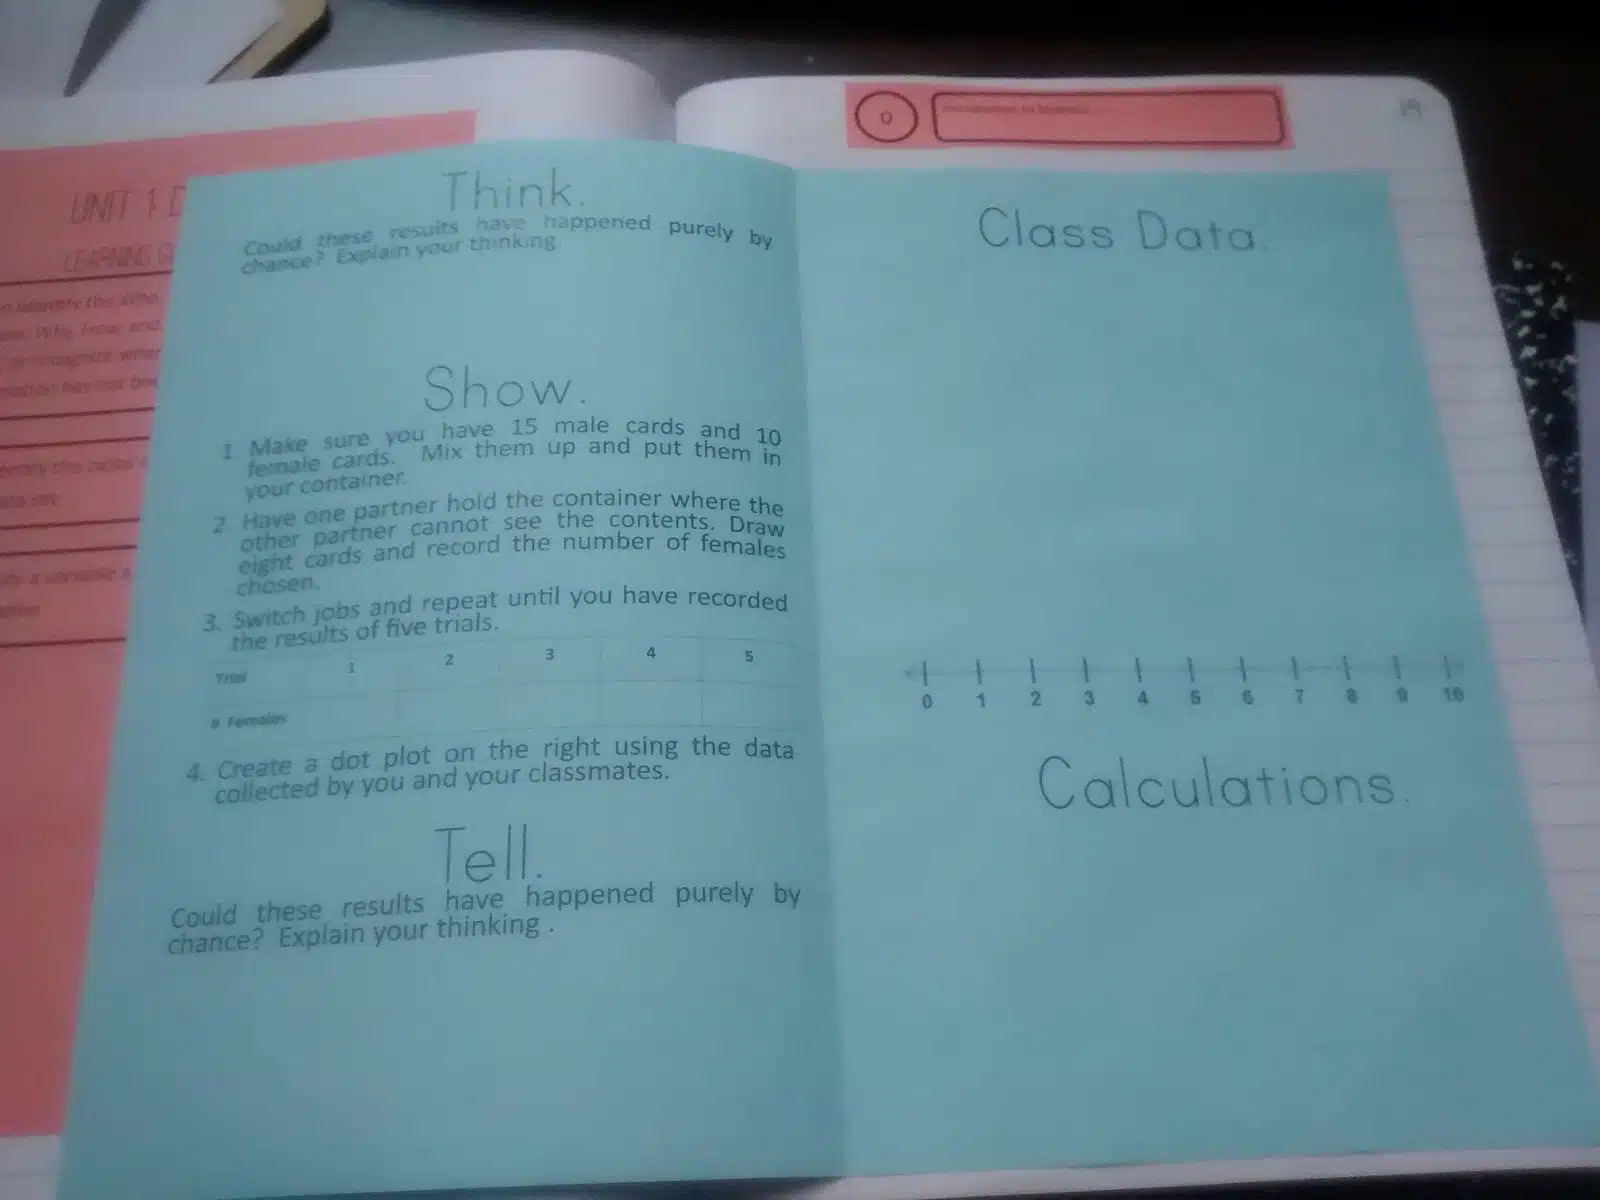 UNIT 1
LEARNING
identify the Who
Why, how and
or recognize when
may not be
a variable a
Think.
Could these results have happened purely by
chance? Explain your thinking.
Show.
1. Make sure you have 15 male cards and 10
female cards. Mix them up and put them in
your container.
2. Have one partner hold the container where the
other partner cannot see the contents. Draw
eight cards and record the number of females
chosen.
3. Switch jobs and repeat until you have recorded
the results of five trials.
Trial 1 2 3 4 5
# Females
4. Create a dot plot on the right using the data
collected by you and your classmates.
Tell.
Could these results have happened purely by
chance? Explain your thinking .
0
Class Data.
0 1 2 3 4 5 6 7 8 9 10
Calculations.